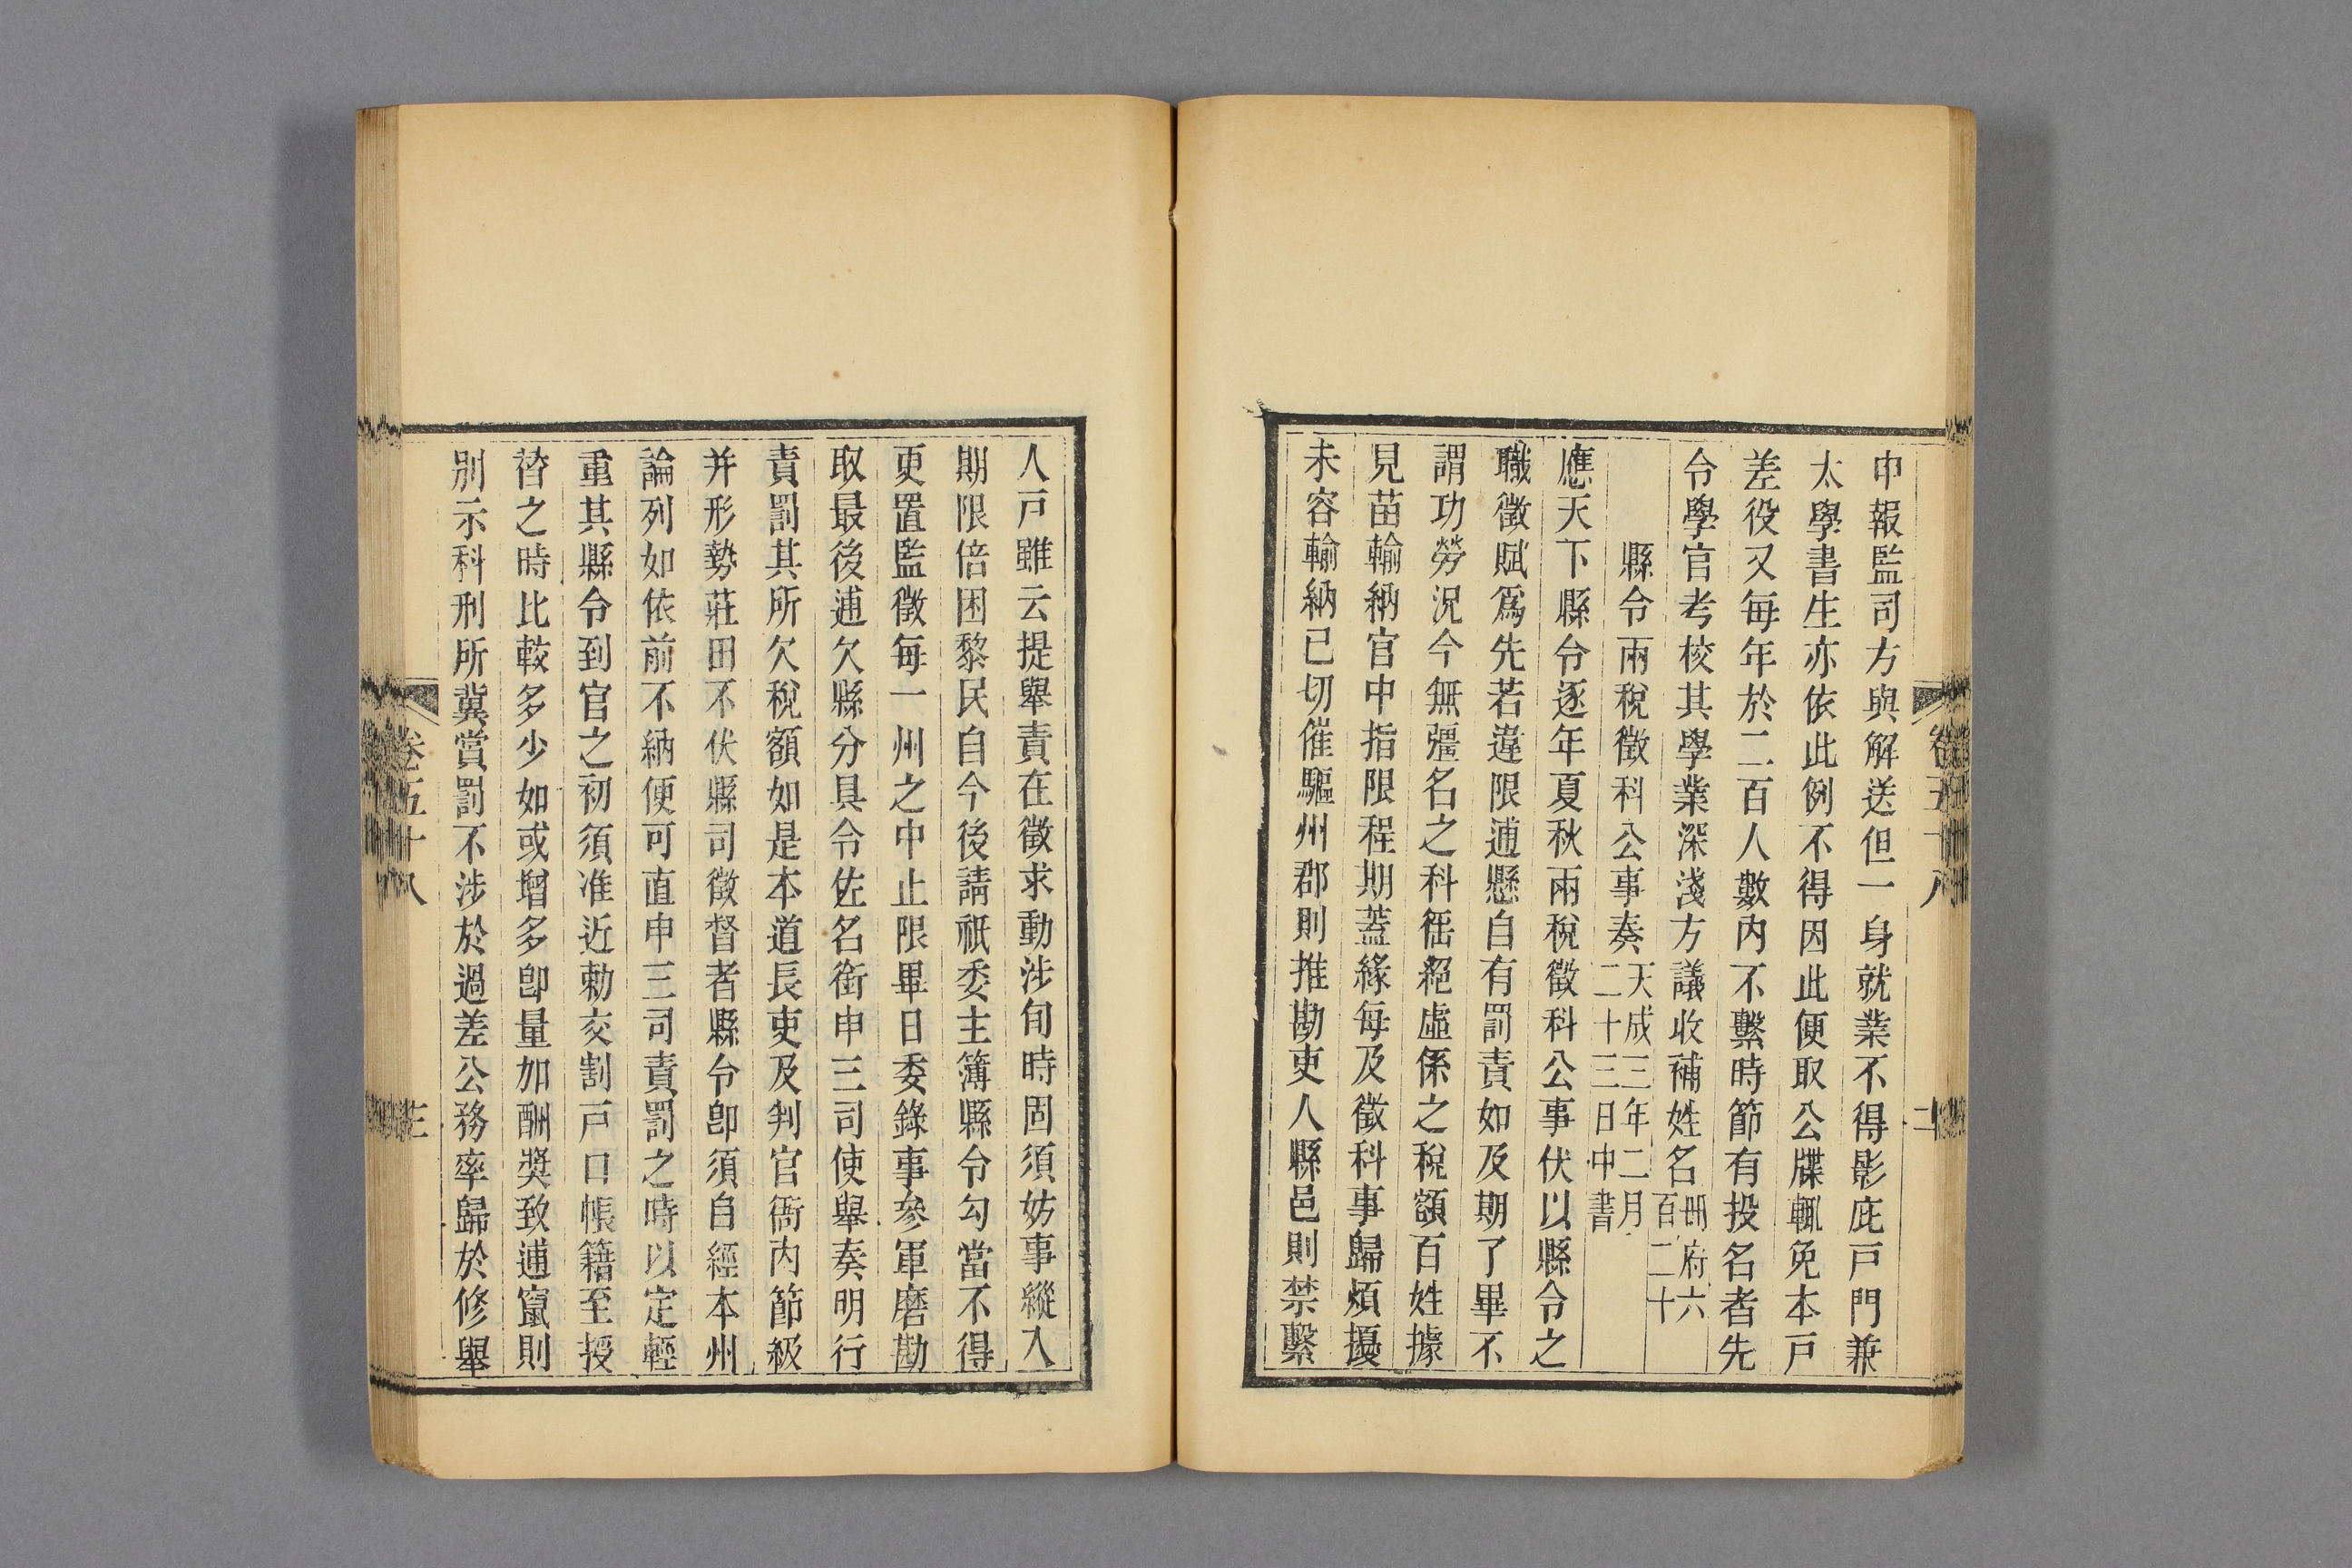 申報監司方與解送但一身就業不得影庇戸門兼
太學書生亦依此例不得因此便取公牒輒免本戸
差役又每年於二百人數內不繫時節有投名者先
令學官考校其學業深淺方議收補姓名冊府六百二十
縣令兩稅徵科公事奏天成三年二月二十三日中書
應天下縣令逐年夏秋兩稅徵科公事伏以縣令之
職徵賦爲先若違限逋懸自有罰責如及期了畢不
謂功勞況今無彊名之科徭絕虛係之稅額百姓據
見苗輸納官中指限程期蓋緣每及徵科事歸煩擾
未容輸納已切催驅州郡則推勘吏人縣邑則禁繫
卷五十八
二
人戸雖云提舉責在徵求動涉旬時固須妨事縱入
期限倍困黎民自今後請祇委主簿縣令勾當不得
更置監徵每一州之中止限畢日委錄事參軍磨勘
取最後逋欠縣分具令佐名銜申三司使舉奏明行
責罰其所欠稅額如是本道長吏及判官衙內節級
并形勢莊田不伏縣司徵督者縣令卽須自經本州
論列如依前不納便可直申三司責罰之時以定輕
重其縣令到官之初須准近勅交割戸口帳籍至授
替之時比較多少如或增多卽量加酬獎致逋竄則
別示科刑所冀賞罰不涉於過差公務率歸於修舉
卷五十八
三